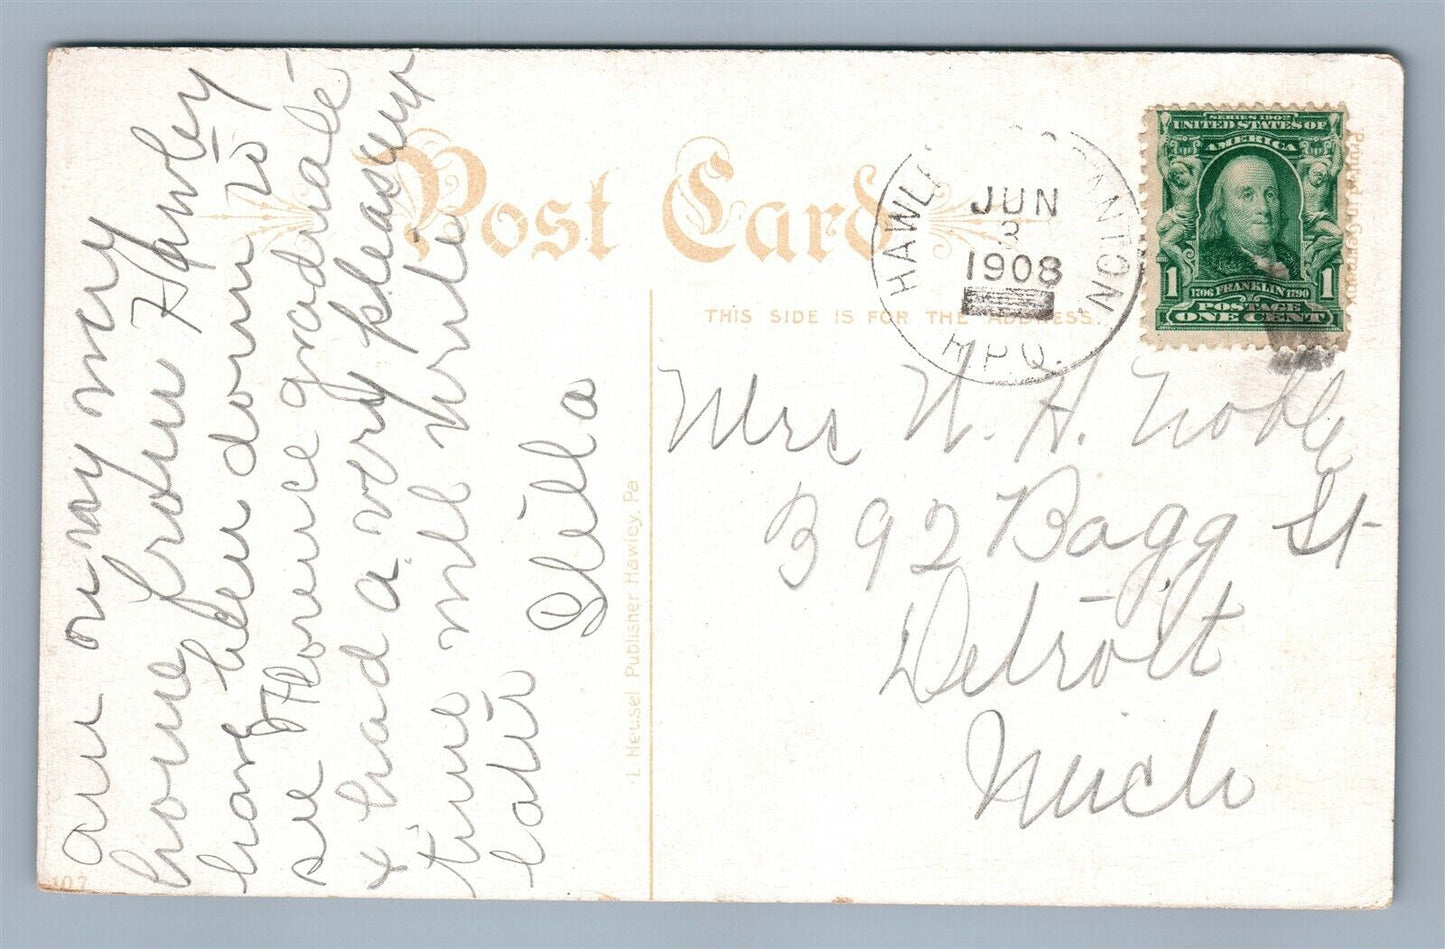 am on my way
home from Hawley
have been down to
see Florence graduate
& had a very pleasant
time will write
later Stella
107
Post Card
THIS SIDE IS FOR THE ADDRESS.
L Heusel Publisher Hawley, Pa
JUN
3
1908
HAWLE
R.P.O.
SERIES 1902
UNITED STATES OF
AMERICA
1 1706 FRANKLIN 1790 1
POSTAGE
ONE CENT
Printed in Germany
Mrs N. H. Noble
392 Bagg St
Detroit
Mich